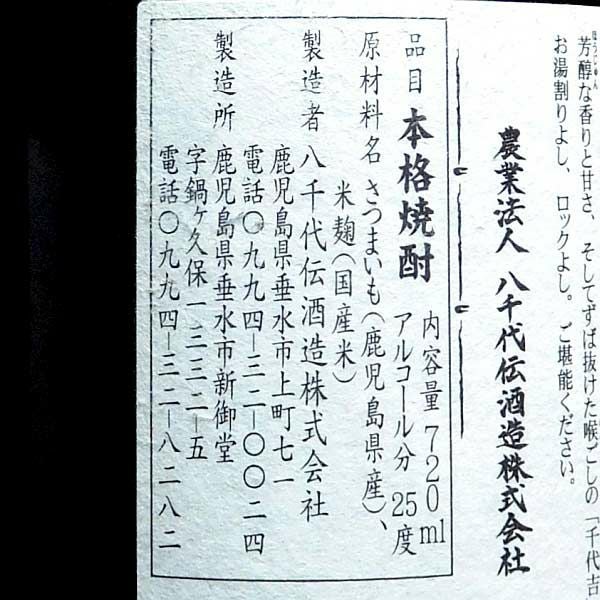 芳醇な香りと甘さ、そしてずば抜けた喉ごしの「千代吉
お湯割りよし、ロックよし。ご堪能ください。
農業法人 八千代伝酒造株式会社
品目 本格焼酎
内容量 720ml
アルコール分 25度
原材料名 さつまいも(鹿児島県産)、
米麹(国産米)
製造者 八千代伝酒造株式会社
鹿児島県垂水市上町七一
電話〇九九四−三二−〇〇二四
製造所 鹿児島県垂水市新御堂
字鍋ヶ久保一三三二−五
電話〇九九四−三二−八二八二